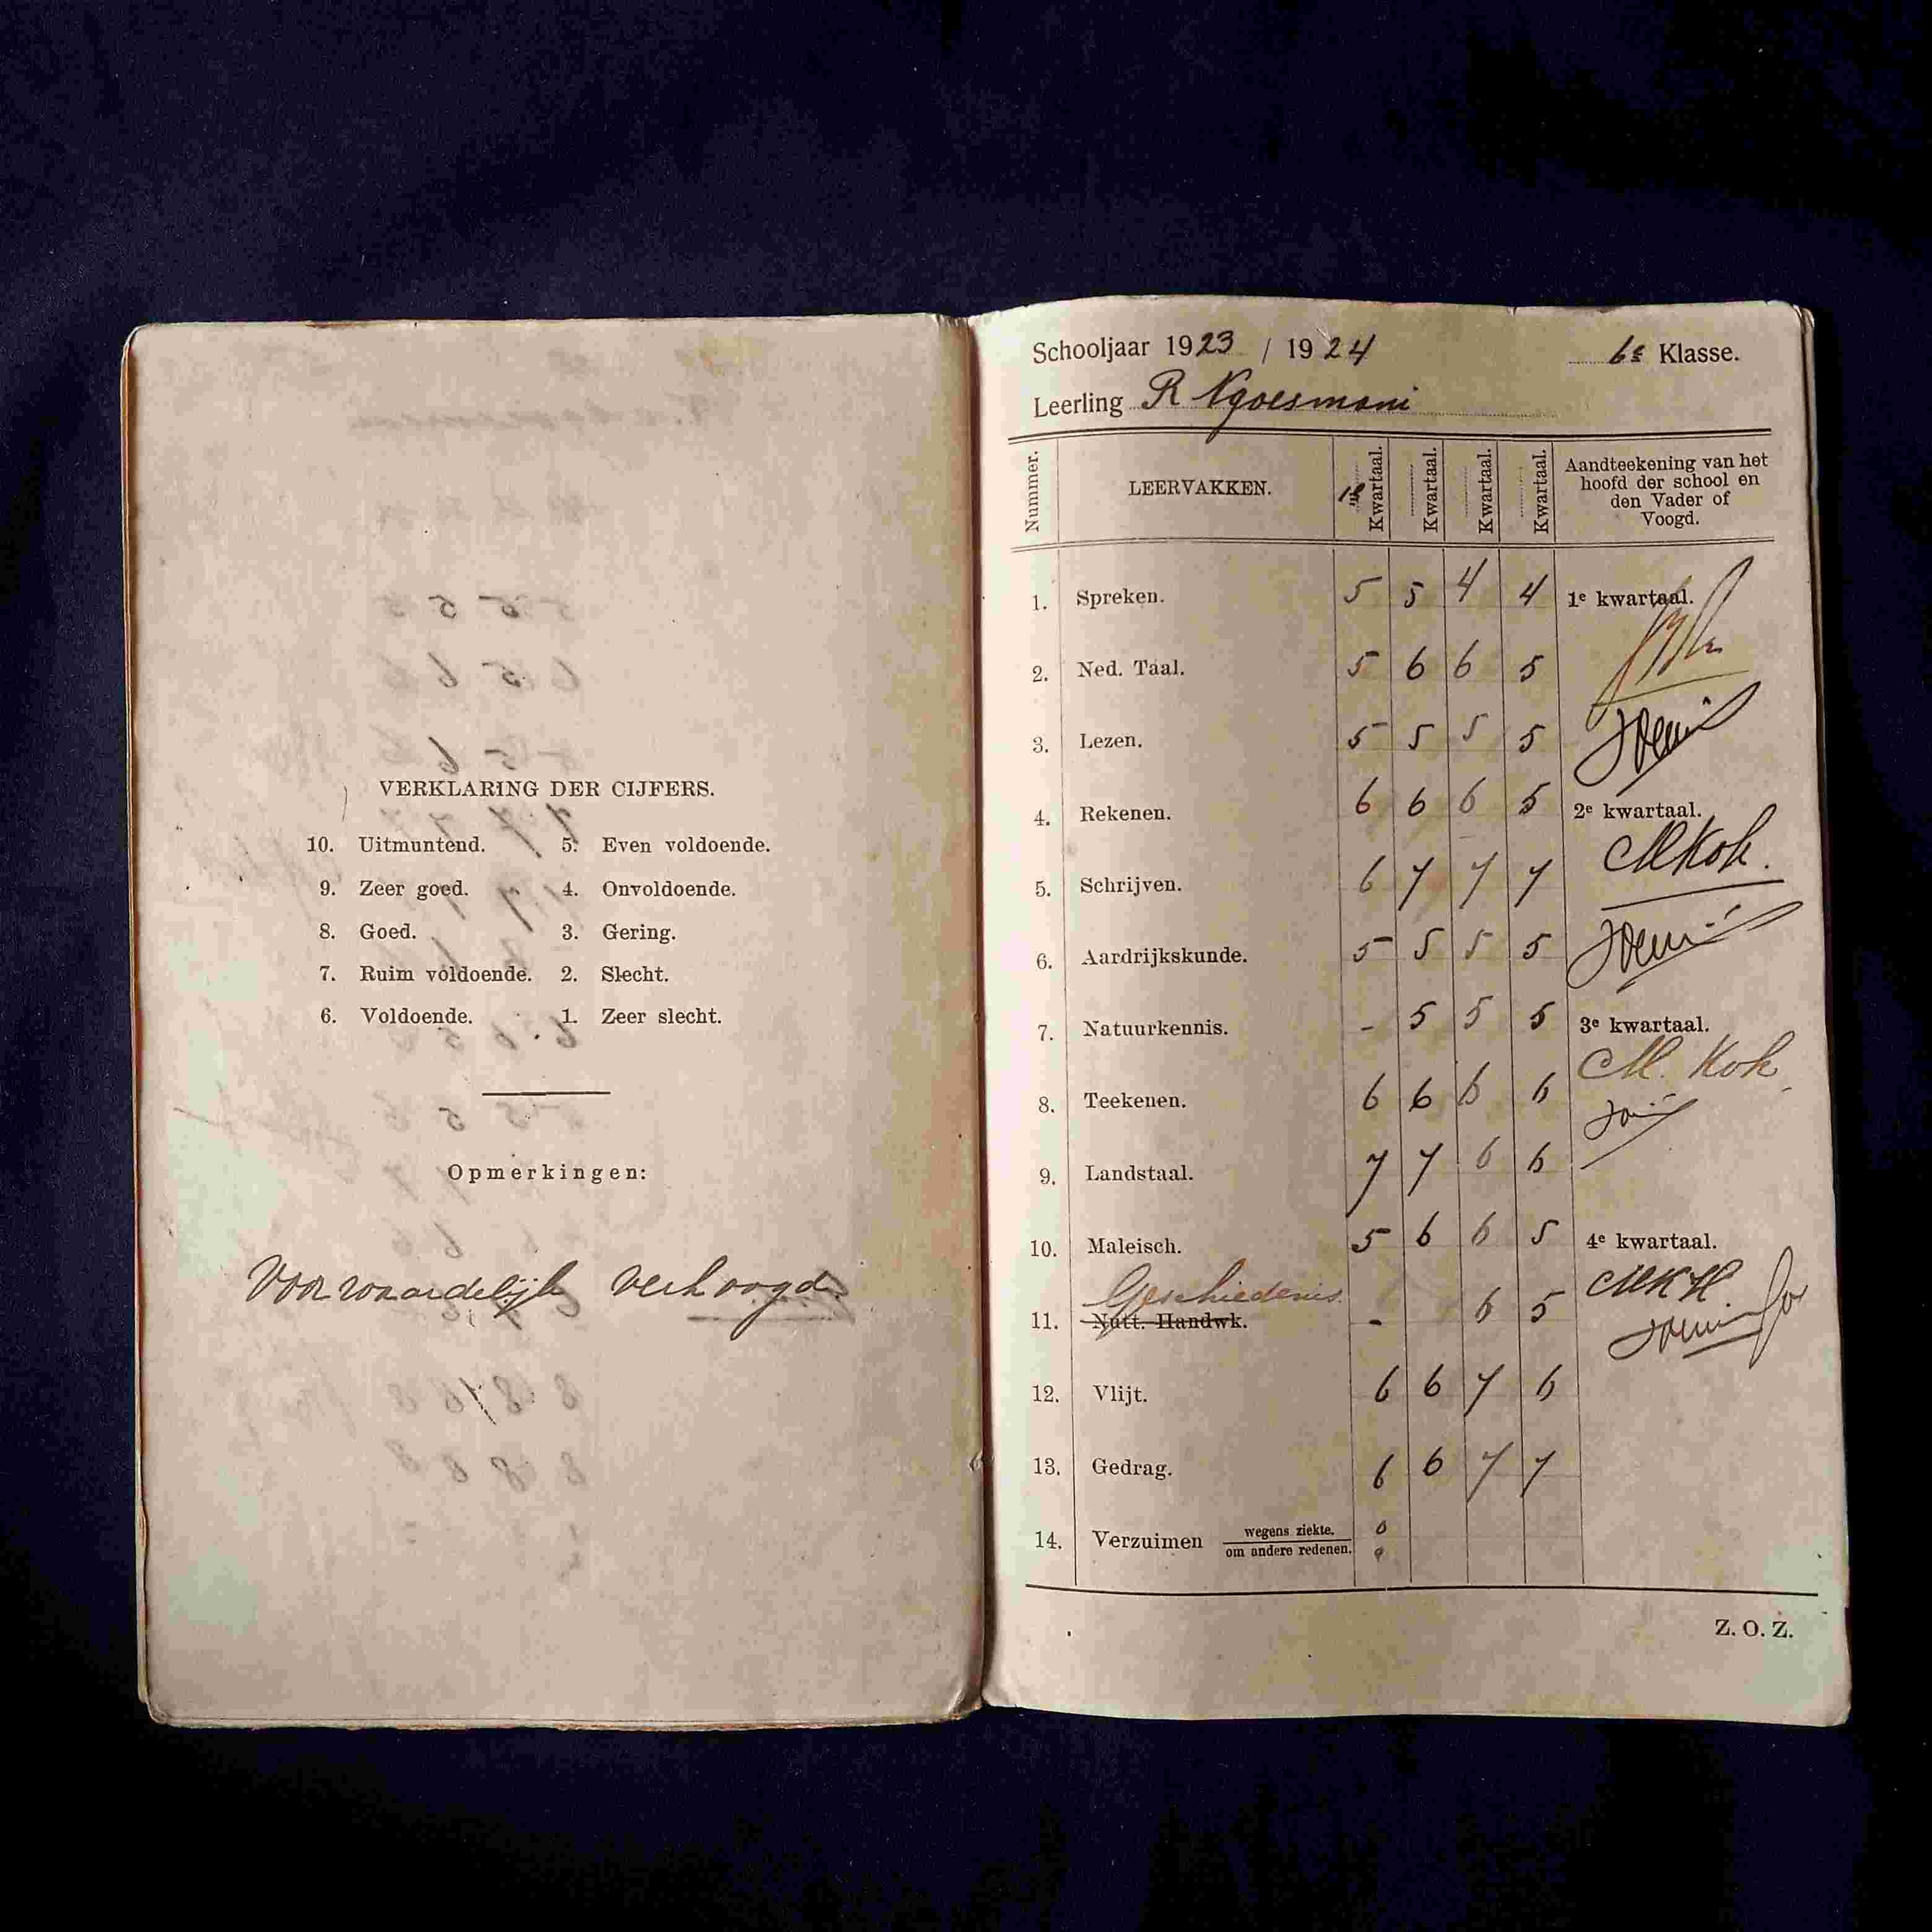 VERKLARING DER CIJFERS.
10. Uitmuntend. 5. Even voldoende.
9. Zeer goed. 4. Onvoldoende.
8. Goed. 3. Gering.
7. Ruim voldoende. 2. Slecht.
6. Voldoende. 1. Zeer slecht.
Opmerkingen:
Voorwaardelijk verhoogd.
Schooljaar 1923 / 1924 6e Klasse.
Leerling R Ngoesmani
Nummer. LEERVAKKEN. 1e Kwartaal. Kwartaal. Kwartaal. Kwartaal. Aandteekening van het
hoofd der school en
den Vader of
Voogd.
1. Spreken. 5 5 4 4 1e kwartaal.
2. Ned. Taal. 5 6 6 5
3. Lezen. 5 5 5 5
4. Rekenen. 6 6 6 5 2e kwartaal.
MKok.
5. Schrijven. 6 7 7 7
6. Aardrijkskunde. 5 5 5 5
7. Natuurkennis. - 5 5 5 3e kwartaal.
M. Kok
8. Teekenen. 6 6 6 6
9. Landstaal. 7 7 6 6
10. Maleisch. 5 6 6 5 4e kwartaal.
Geschiedenis
11. Nutt. Handwk. - 6 5
12. Vlijt. 6 6 7 6
13. Gedrag. 6 6 7 7
14. Verzuimen wegens ziekte. 0
om andere redenen. 0
Z. O. Z.